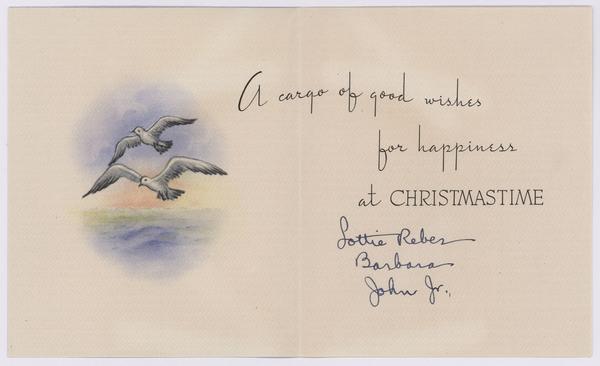 A cargo of good wishes
for happiness
at CHRISTMASTIME
Lottie Reber
Barbara
John Jr.